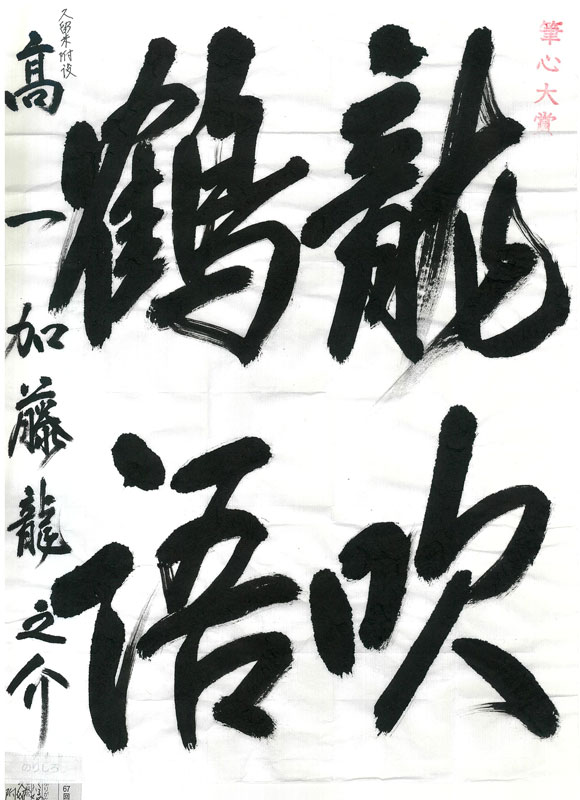 筆心大賞
龍吹
鶴語
久留米附設
高一 加藤龍之介
のりしろ
67回